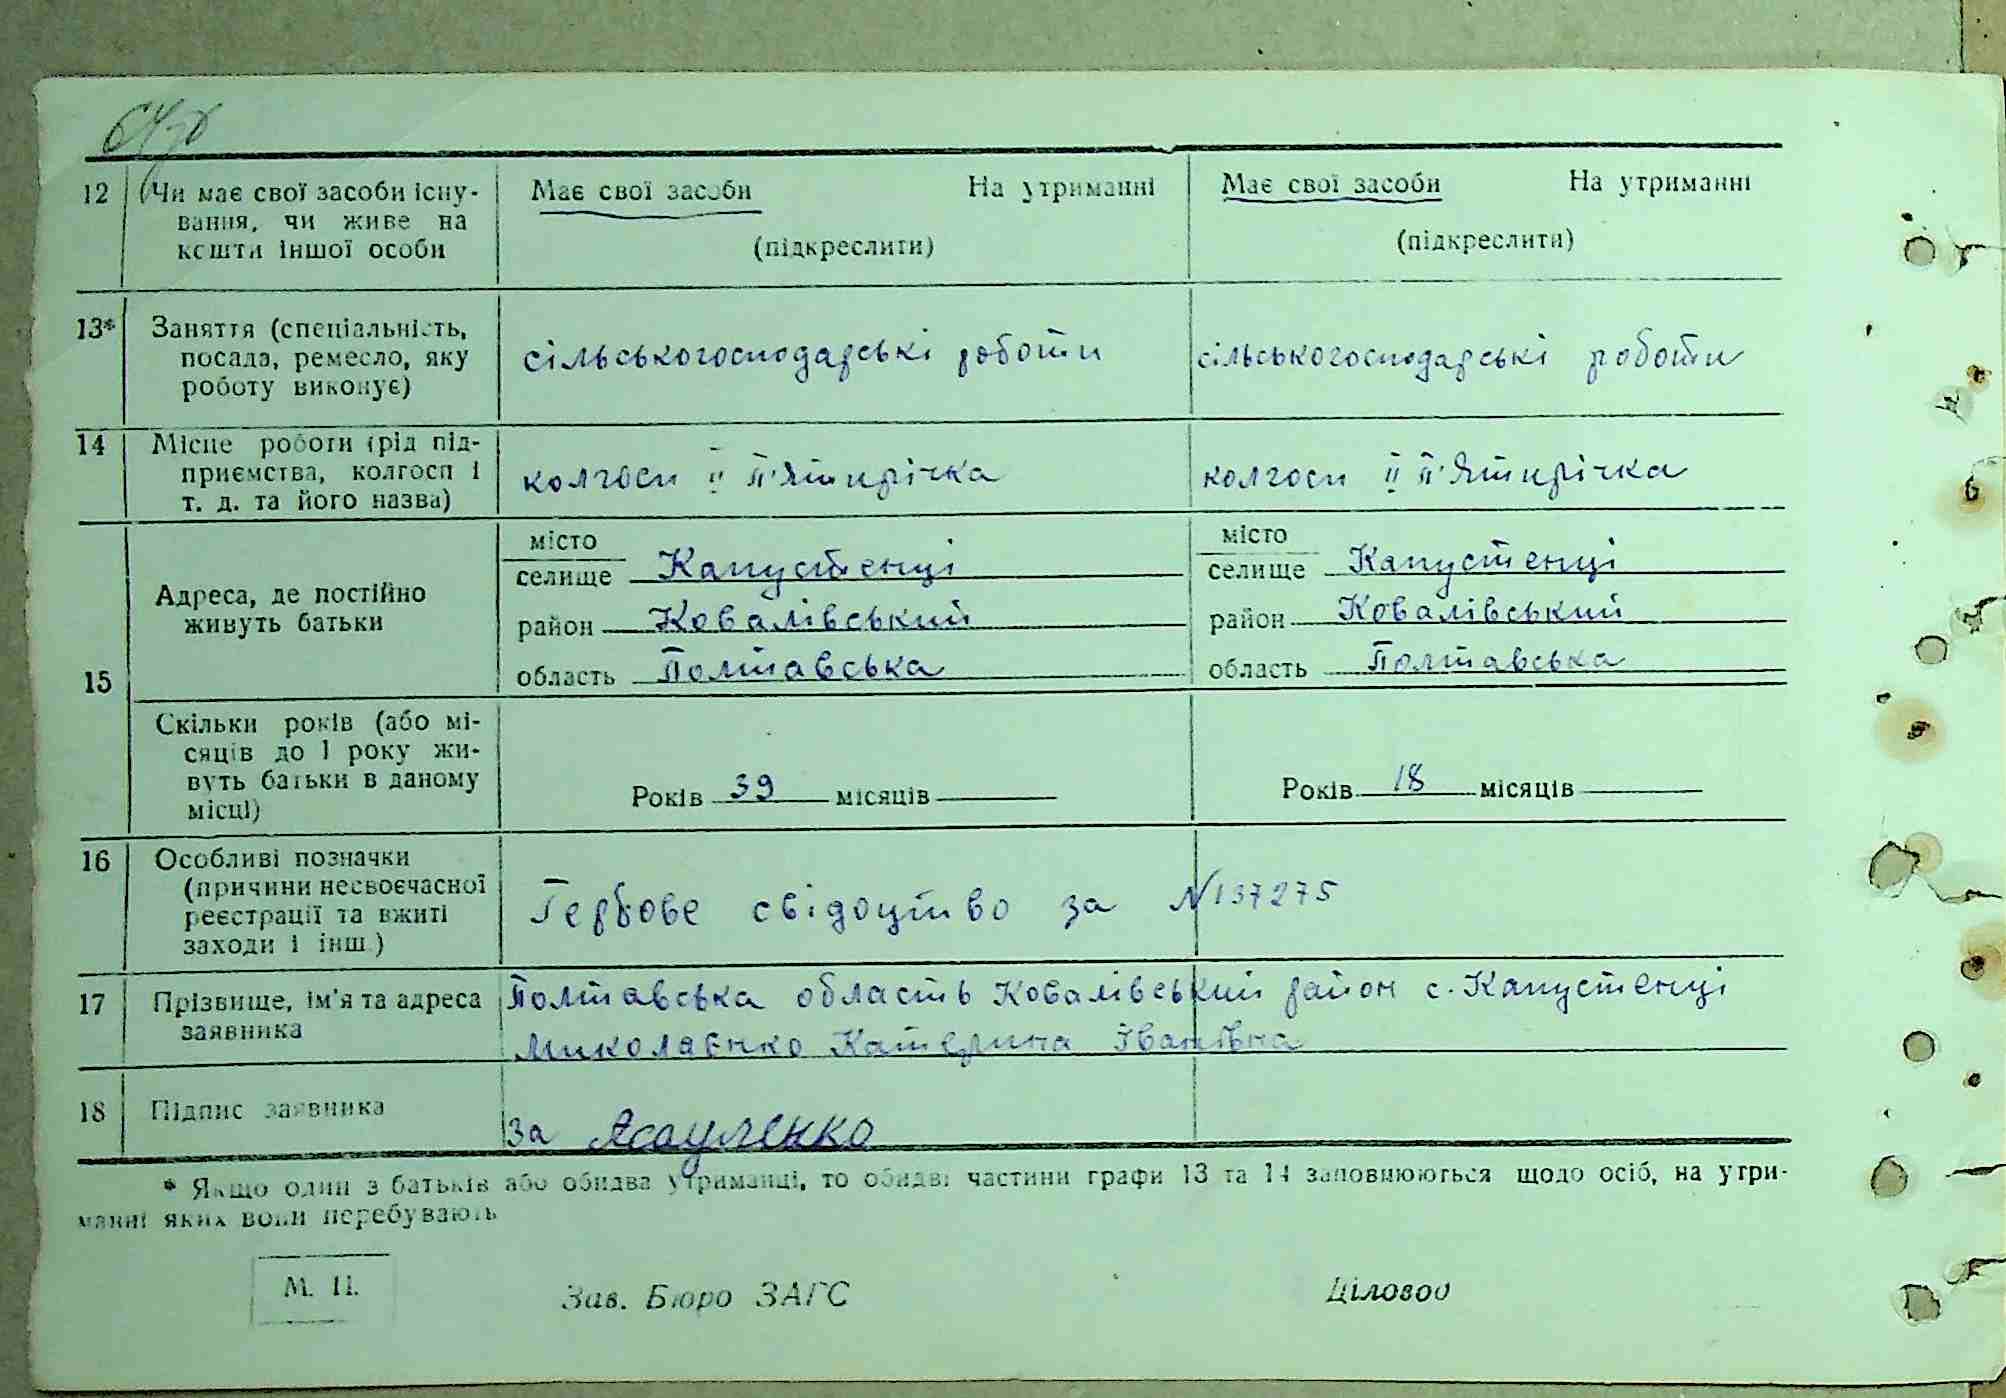 12 (Чи має свої засоби існу- Має свої засоби На утриманні Має свої засоби На утриманні
вання, чи живе на
кошти іншої особи (підкреслити) (підкреслити)
13* Заняття (спеціальність,
посада, ремесло, яку сільськогосподарські роботи сільськогосподарські роботи
роботу виконує)
14 Місце роботи (рід під-
приємства, колгосп і колгосп ІІ П'ятирічка колгосп ІІ П'ятирічка
т. д. та його назва)
місто місто
селище Капустенці селище Капустенці
Адреса, де постійно
живуть батьки район Ковалівський район Ковалівський
15 область Полтавська область Полтавська
Скільки років (або мі-
сяців до 1 року жи-
вуть батьки в даному Років 39 місяців Років 18 місяців
місці)
16 Особливі позначки
(причини несвоєчасної Гербове свідоцтво за N137275
реєстрації та вжиті
заходи і інш.)
17 Прізвище, ім'я та адреса Полтавська область Ковалівський район с. Капустенці
заявника Миколаєнко Катерина Іванівна
18 Підпис заявника за Ясауленко
* Якщо один з батьків або обидва утриманці, то обидві частини графи 13 та 14 заповнюються щодо осіб, на утри-
манні яких вони перебувають
М. П. Зав. Бюро ЗАГС Ціловой